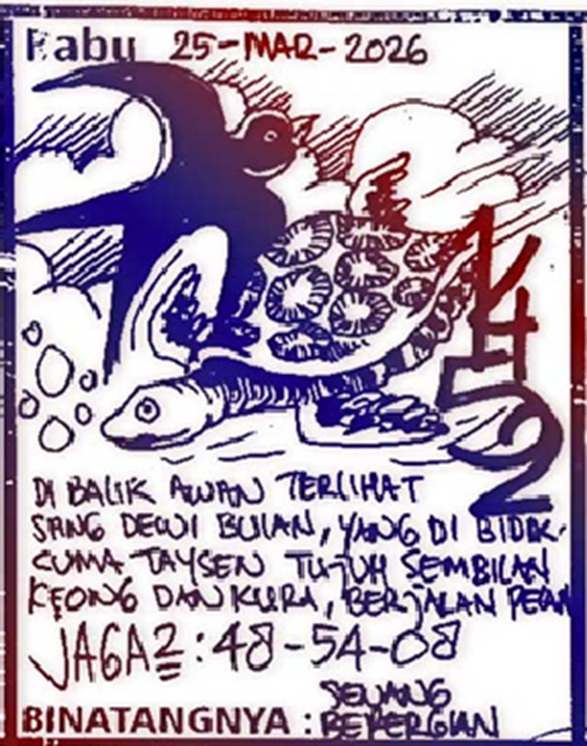 Rabu 25-MAR-2026
1452
DI BALIK AWAN TERLIHAT
SANG DEWI BULAN, YANG DI BIDIK
CUMA TAYSEN TUJUH SEMBILAN
KEONG DAN KURA, BERJALAN
JAGA2 : 48-54-08
SENANG
BINATANGNYA : BEPERGIAN